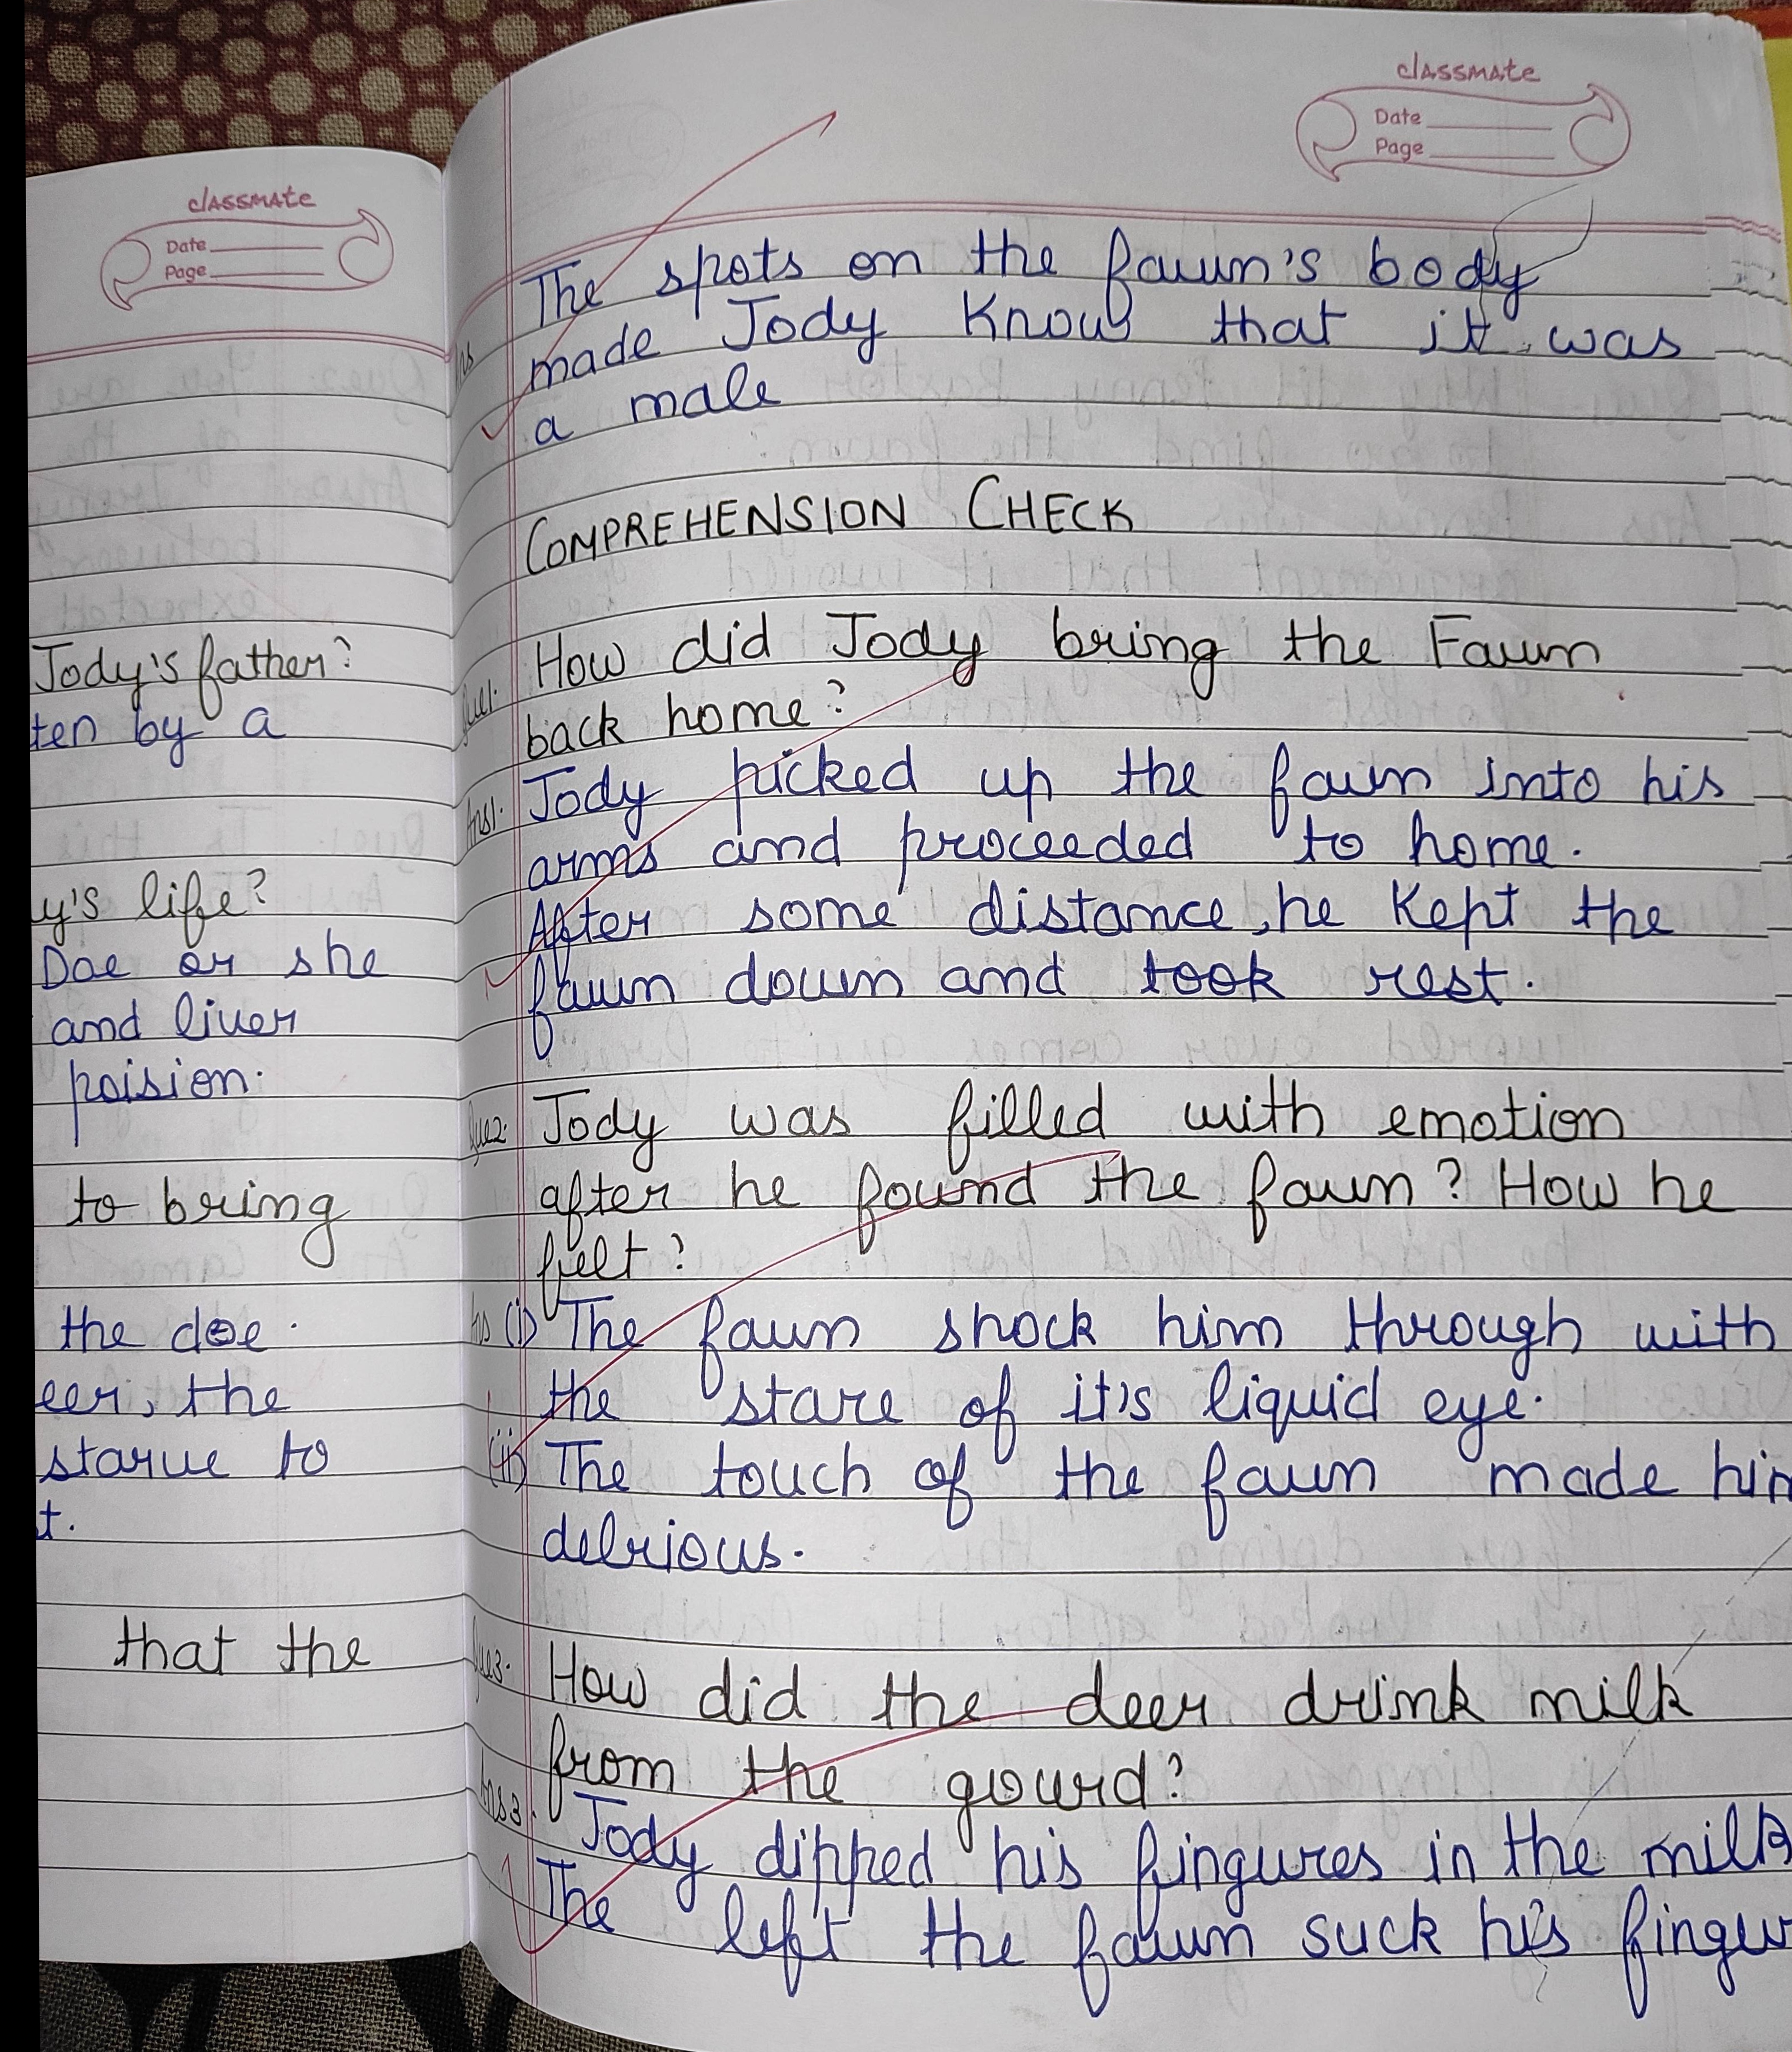 classmate
Date
Page
Jody's father?
ten by a
y's life?
Doe or she
and liver
poision.
to bring
the doe.
eer, the
starve to
t.
that the
classmate
Date
Page
Ans
The spots on the fawn's body
made Jody Know that it was
a male
COMPREHENSION CHECK
Que1. How did Jody bring the Fawn
back home?
Ans1. Jody picked up the fawn into his
arms and proceeded to home.
After some distance, he Kept the
fawn down and took rest.
Que2. Jody was filled with emotion
after he found the fawn? How he
felt?
Ans (i) The fawn shock him through with
the stare of it's liquid eye.
(ii) The touch of the fawn made him
delrious.
Que3. How did the deer drink milk
from the gourd?
Ans3. Jody dipped his fingures in the milk
The left the fawn suck his fingu